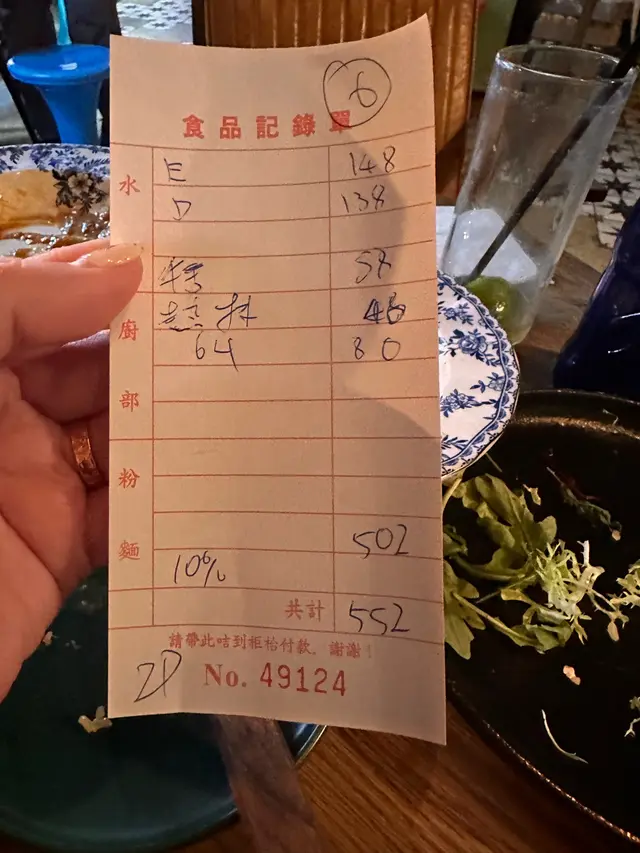 6
食品記錄單
水 E 148
D 138
特 88
廚 熱抹 48
64 80
部
粉
502
麵 10%
共計 552
請帶此咭到柜枱付款。謝謝！
2P No. 49124